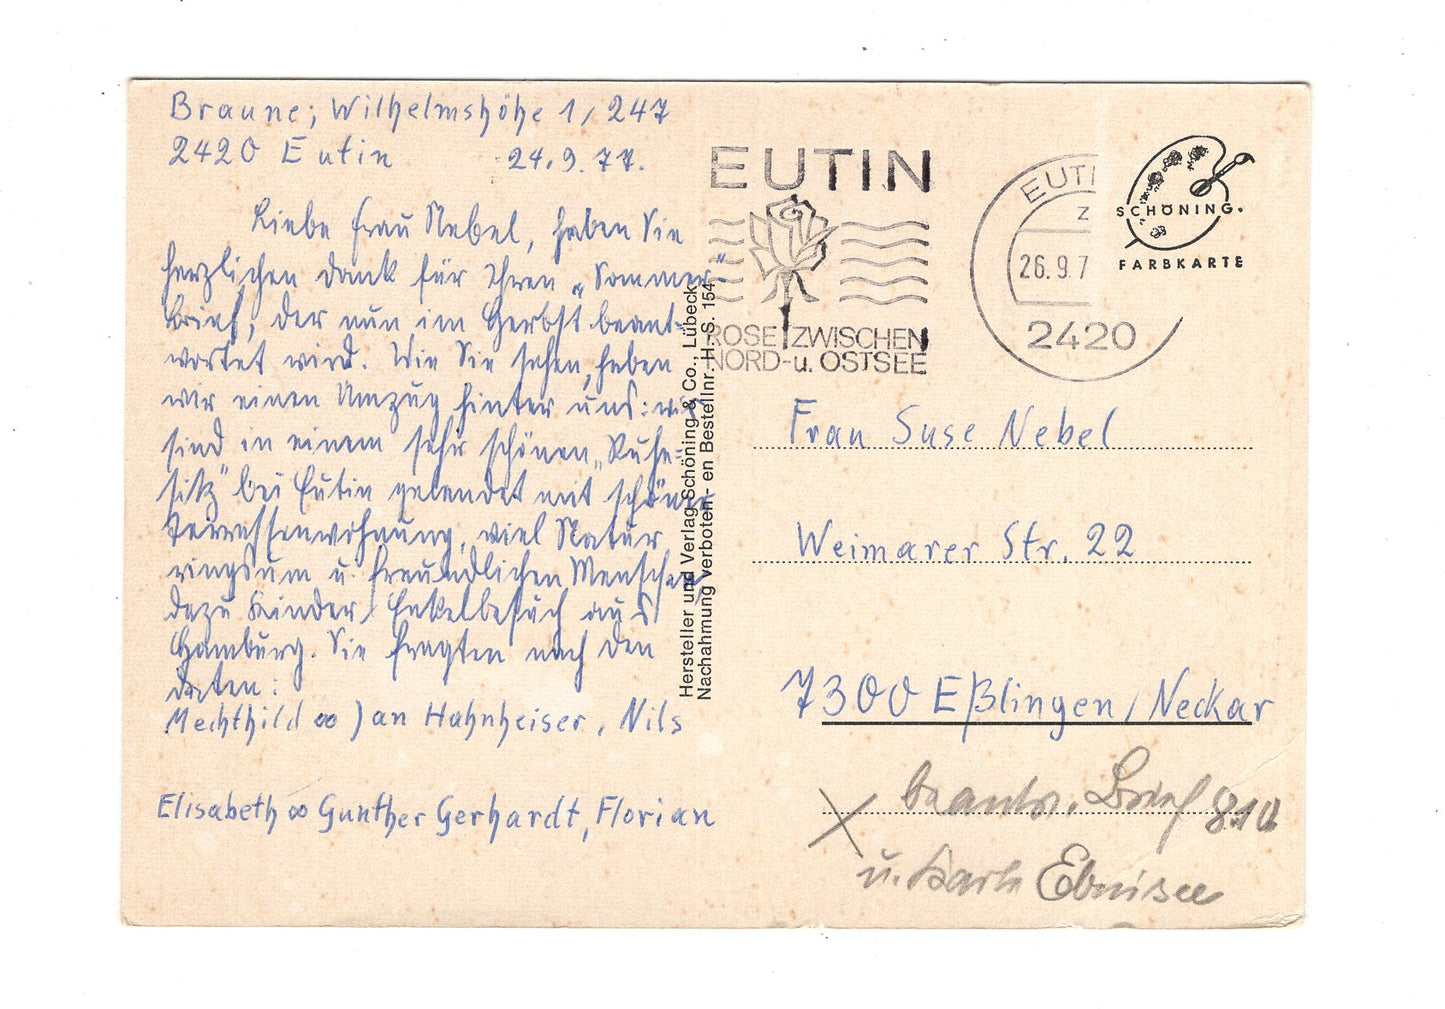 Braune; Wilhelmshöhe 1/247
2420 Eutin 24.9.77.
Liebe Frau Nebel, haben Sie
herzlichen Dank für Ihren „Sommer-"
brief, der nun im Herbst beant-
wortet wird. Wie Sie sehen, haben
wir einen Umzug hinter uns: wir
sind in einem sehr schönen „Ruhe-
sitz" bei Eutin gelandet mit schöner
Terrassenwohnung, viel Natur
ringsum u. freundlichen Menschen,
dazu Kinder/Enkelbesuch aus
Hamburg. Sie fragten nach den
Daten:
Mechthild ∞ Jan Hahnheiser, Nils
Elisabeth ∞ Gunther Gerhardt, Florian
Hersteller und Verlag Schöning & Co., Lübeck
Nachahmung verboten - en Bestellnr. H. S. 154
EUTIN
ROSE ZWISCHEN
NORD-u. OSTSEE
EUTI
z
26.9.7
2420
SCHÖNING.
FARBKARTE
Frau Suse Nebel
Weimarer Str. 22
7300 Eßlingen/Neckar
beantw. Brief 8.10
u. Karte Ebnisee